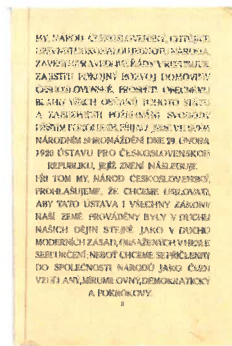 MY, NÁROD ČESKOSLOVENSKÝ, CHTĚJÍCE
UPEVNITI DOKONALOU JEDNOTU NÁRODA,
ZAVÉSTI SPRAVEDLIVÉ ŘÁDY V REPUBLICE,
ZAJISTITI POKOJNÝ ROZVOJ DOMOVINY
ČESKOSLOVENSKÉ, PROSPĚTI OBECNÉMU
BLAHU VŠECH OBČANŮ TOHOTO STÁTU
A ZABEZPEČITI POŽEHNÁNÍ SVOBODY
PŘÍŠTÍM POKOLENÍM, PŘIJALI JSME VE SVÉM
NÁRODNÍM SHROMÁŽDĚNÍ DNE 29. ÚNORA
1920 ÚSTAVU PRO ČESKOSLOVENSKOU
REPUBLIKU, JEJÍŽ ZNĚNÍ NÁSLEDUJE.
PŘI TOM MY, NÁROD ČESKOSLOVENSKÝ,
PROHLAŠUJEME, ŽE CHCEME USILOVATI,
ABY TATO ÚSTAVA I VŠECHNY ZÁKONY
NAŠÍ ZEMĚ PROVÁDĚNY BYLY V DUCHU
NAŠICH DĚJIN STEJNĚ JAKO V DUCHU
MODERNÍCH ZÁSAD, OBSAŽENÝCH V HESLE
SEBEURČENÍ; NEBOŤ CHCEME SE PŘIČLENITI
DO SPOLEČNOSTI NÁRODŮ JAKO ČLEN
VZDĚLANÝ, MÍRUMILOVNÝ, DEMOKRATICKÝ
A POKROKOVÝ.